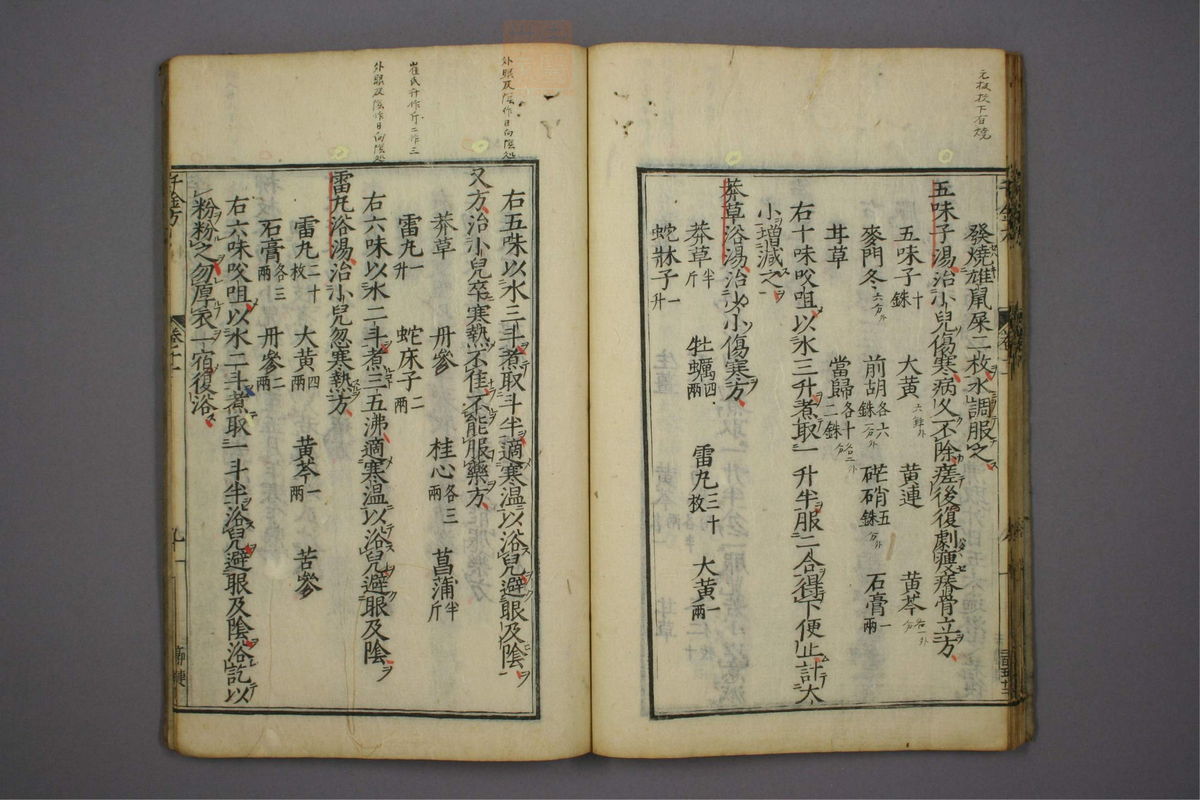 元板校下有燒
發燒雄鼠屎二枚水調服之
五味子湯治小兒傷寒病久不除瘥後復劇瘦瘠骨立方
五味子十銖 大黃六銖 黃連 黃芩
麥門冬 前胡各六銖 硭硝五銖 石膏一兩
甘草 當歸各十二銖
右十味㕮咀以水三升煮取一升半服二合得下便止計大
小增減之
莽草浴湯治少小傷寒方
莽草半斤 牡蠣四兩 雷丸三十枚 大黃一兩
蛇牀子一升
外眼及陰作目向陰處
右五味以水三斗煮取斗半適寒温以浴兒避眼及陰
又方治小兒卒寒熱不佳不能服藥方
莽草 丹參 桂心各三兩 菖蒲半斤
崔氏升作斤二作三
雷丸一升 蛇床子二兩
外眼及陰作目向陰處
右六味以水二斗煮三五沸適寒温以浴兒避眼及陰
雷丸浴湯治小兒忽寒熱方
雷丸二十枚 大黃四兩 黃芩一兩 苦參
石膏各三兩 丹參二兩
右六味㕮咀以水二斗煮取一斗半浴兒避眼及陰浴訖以
粉粉之勿厚衣一宿復浴
千金方 卷十一